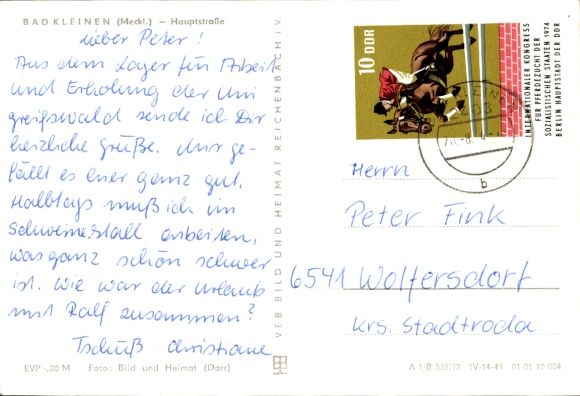 BAD KLEINEN (Meckl.) — Hauptstraße
Lieber Peter!
Aus dem Lager für Arbeit
und Erholung der Uni
greifswald sende ich Dir
herzliche Grüße. Mir ge-
fällt es hier ganz gut.
Halbtags muß ich im
Schweinestall arbeiten,
was ganz schön schwer
ist. Wie war der Urlaub
mit Ralf zusammen?
Tschüß Christiane
EVP -,20 M Foto: Bild und Heimat (Darr)
VEB BILD UND HEIMAT REICHENBACH i. V.
10 DDR
INTERNATIONALER KONGRESS
FÜR PFERDEZUCHT DER
SOZIALISTISCHEN STAATEN 1974
BERLIN HAUPTSTADT DER DDR
b
Herrn
Peter Fink
6541 Wolfersdorf
Krs. Stadtroda
A 1/B 535/72 IV-14-45 01 01 10 004